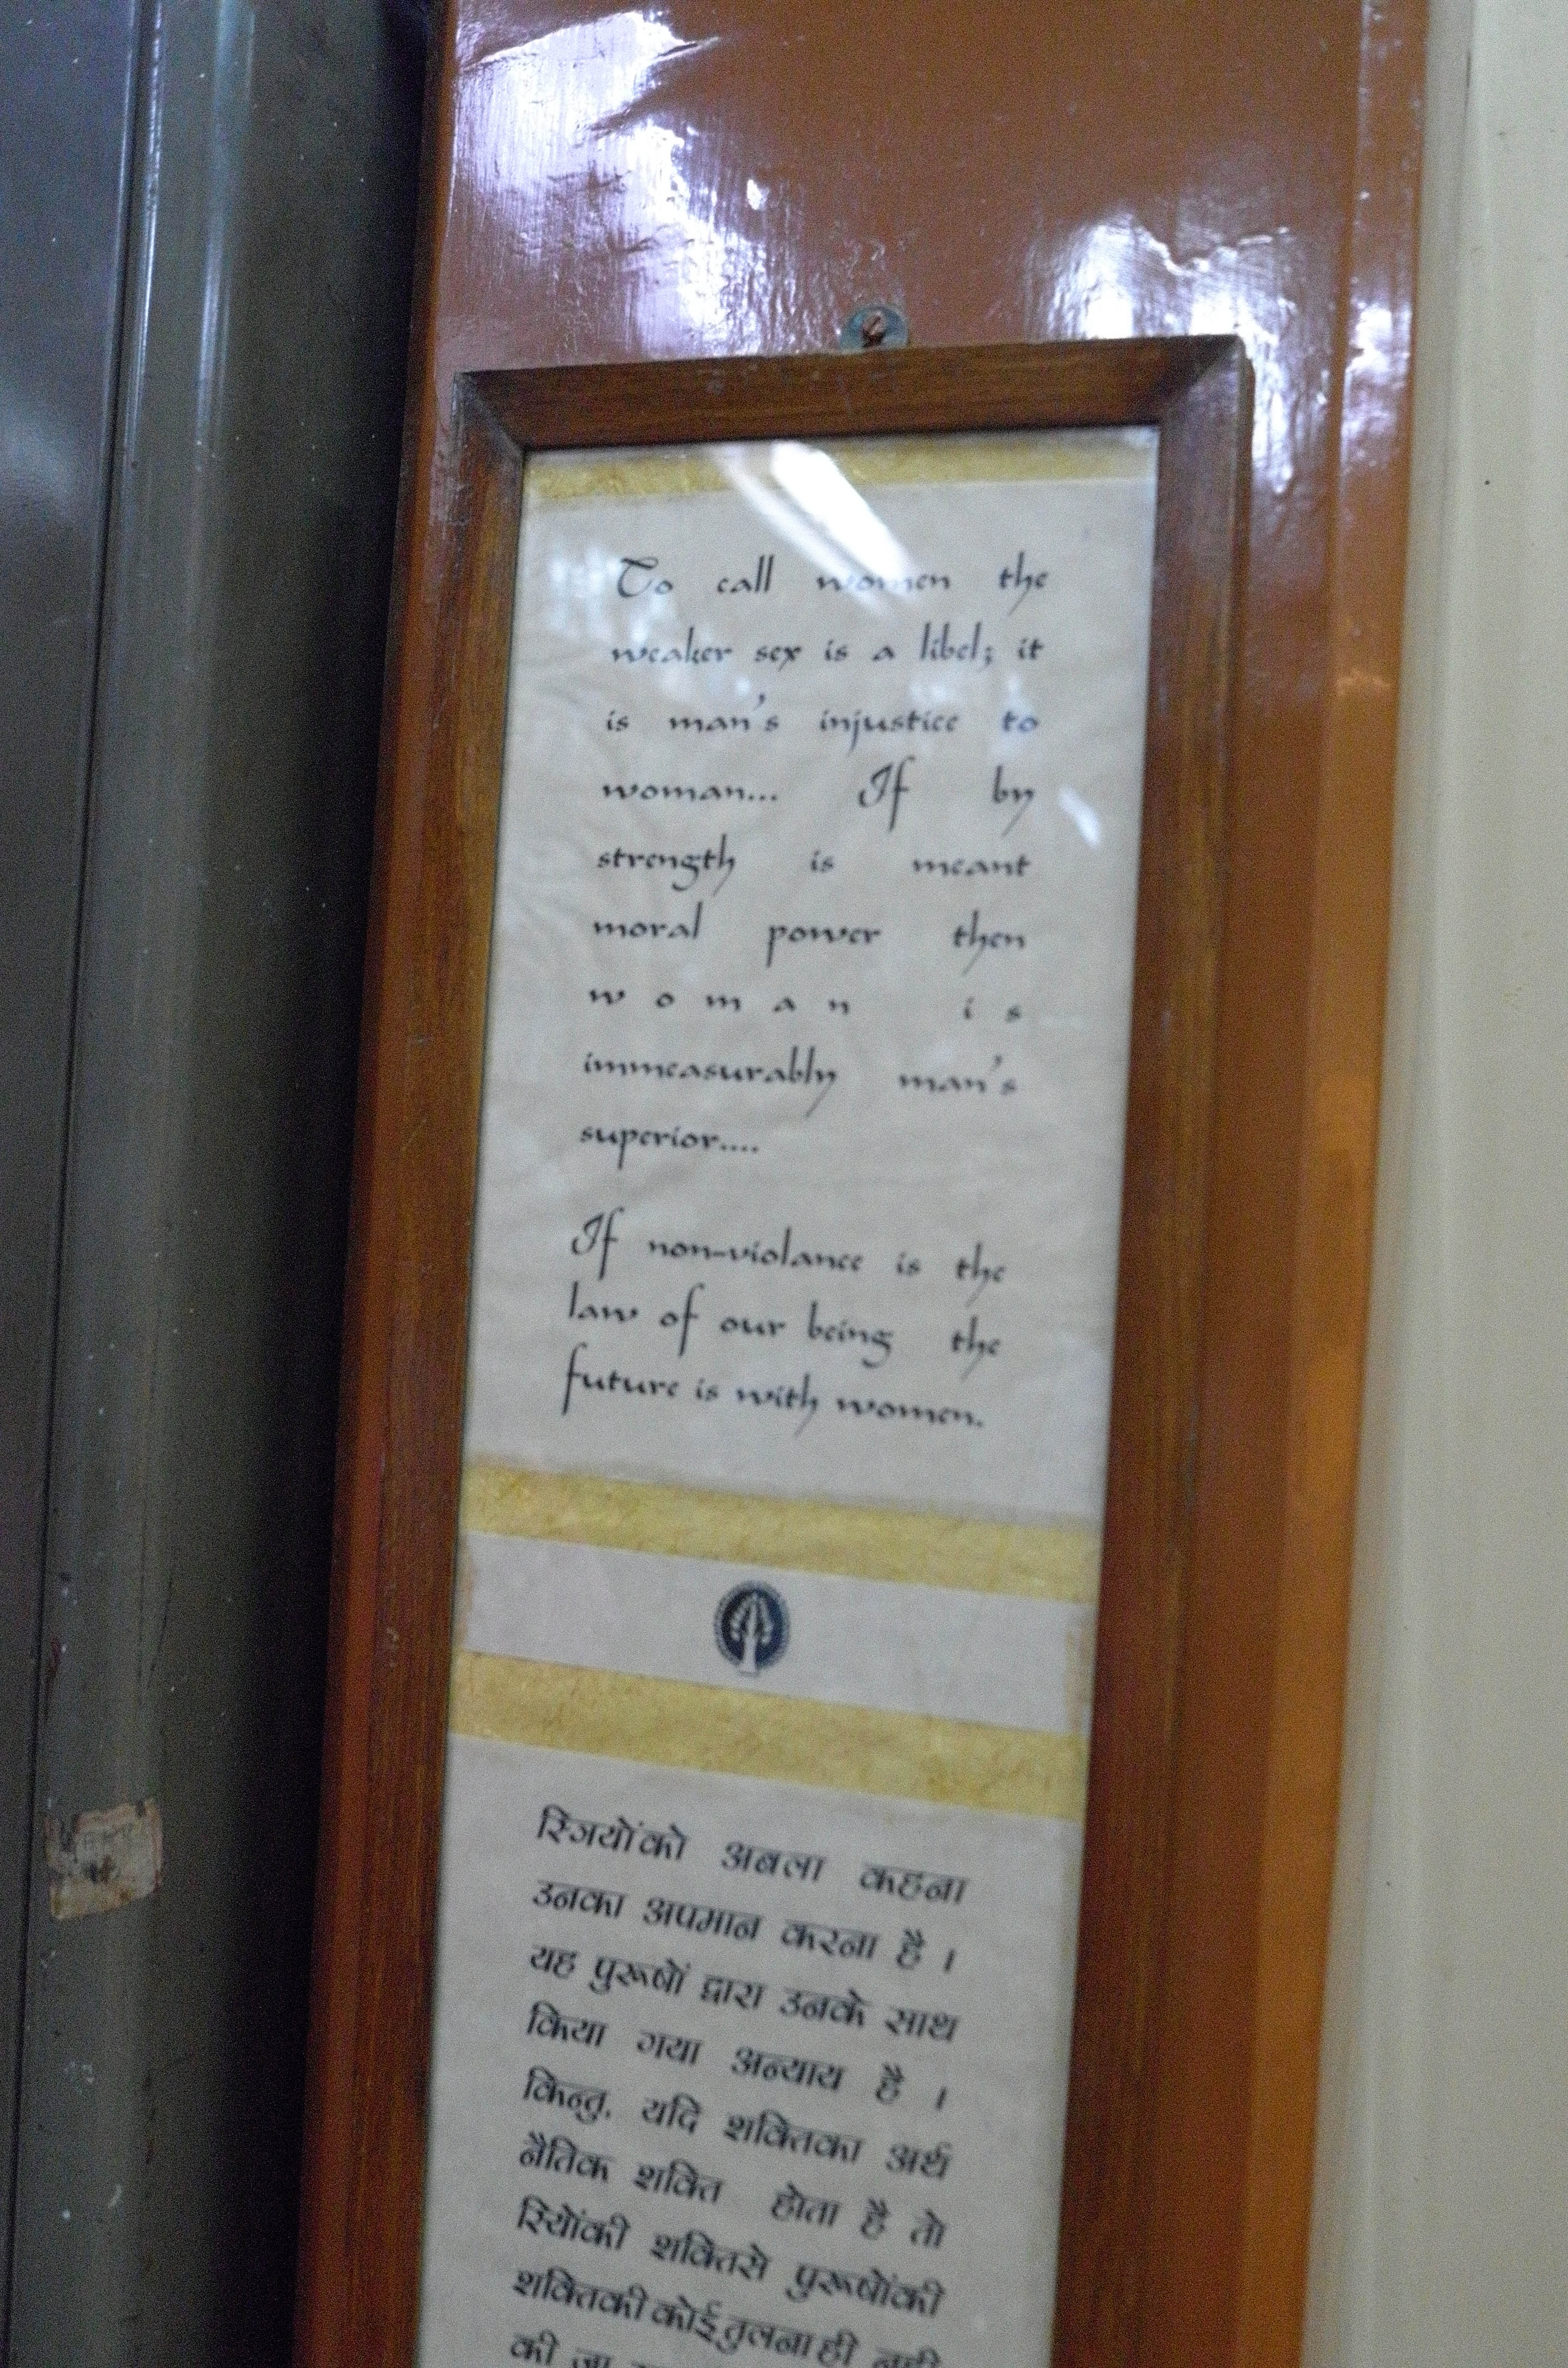 To call women the
weaker sex is a libel; it
is man's injustice to
woman... If by
strength is meant
moral power then
woman is
immeasurably man's
superior....
If non-violance is the
law of our being the
future is with women.
स्त्रियोंको अबला कहना
उनका अपमान करना है ।
यह पुरूषों द्वारा उनके साथ
किया गया अन्याय है ।
किन्तु, यदि शक्तिका अर्थ
नैतिक शक्ति होता है तो
स्रियोंकी शक्तिसे पुरूषोंकी
शक्तिकी कोई तुलना ही नही
की जा